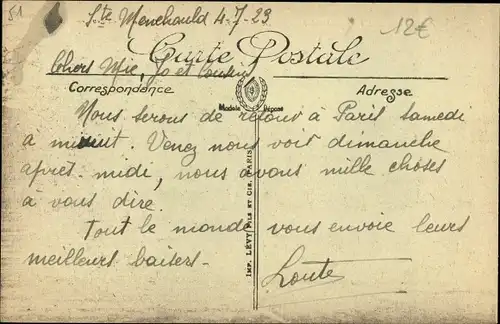 51
Ste Menehauld 4-7-23
12€
Carte Postale
Chers Mie, Jo et Loulou
Correspondance
Adresse
Modèle Déposé
Nous serons de retour à Paris samedi
a minuit. Venez nous voir dimanche
après-midi, nous avons mille choses
à vous dire.
Tout le monde vous envoie leurs
meilleurs baisers-
Loute
IMP. LÉVY FILS ET CIE, PARIS